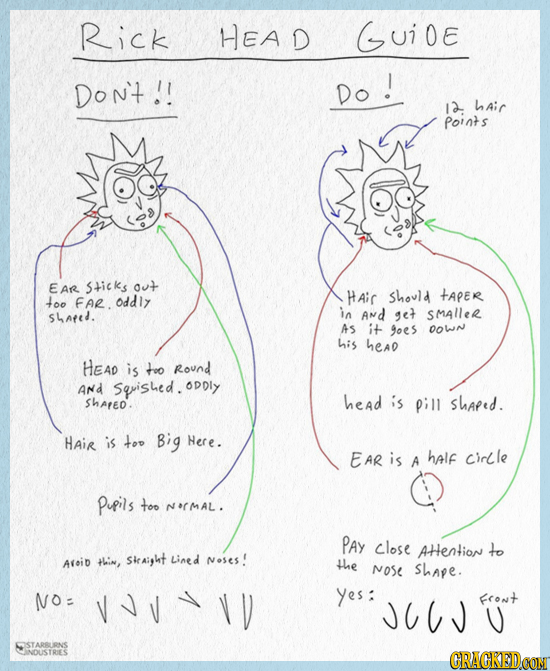 Rick HEAD GUiDE
DON't !!
DO !
12 hAir
points
EAR Sticks out
too FAR. Oddly
shAped.
HEAD is too Round
AND Squished. ODDly
shAPED.
HAiR is too Big Here.
Pupils too NORMAL.
Avoid thin, StrAight Lined Noses!
NO=
HAir Should tAPER
in AND get SMAlleR
AS it goes DOWN
his heAD
head is pill shAped.
EAR is A hAlF circle
PAY close AttentioN to
the NOSE ShApe.
yes:
Front
STARBURNS
INDUSTRIES
CRACKED.COM